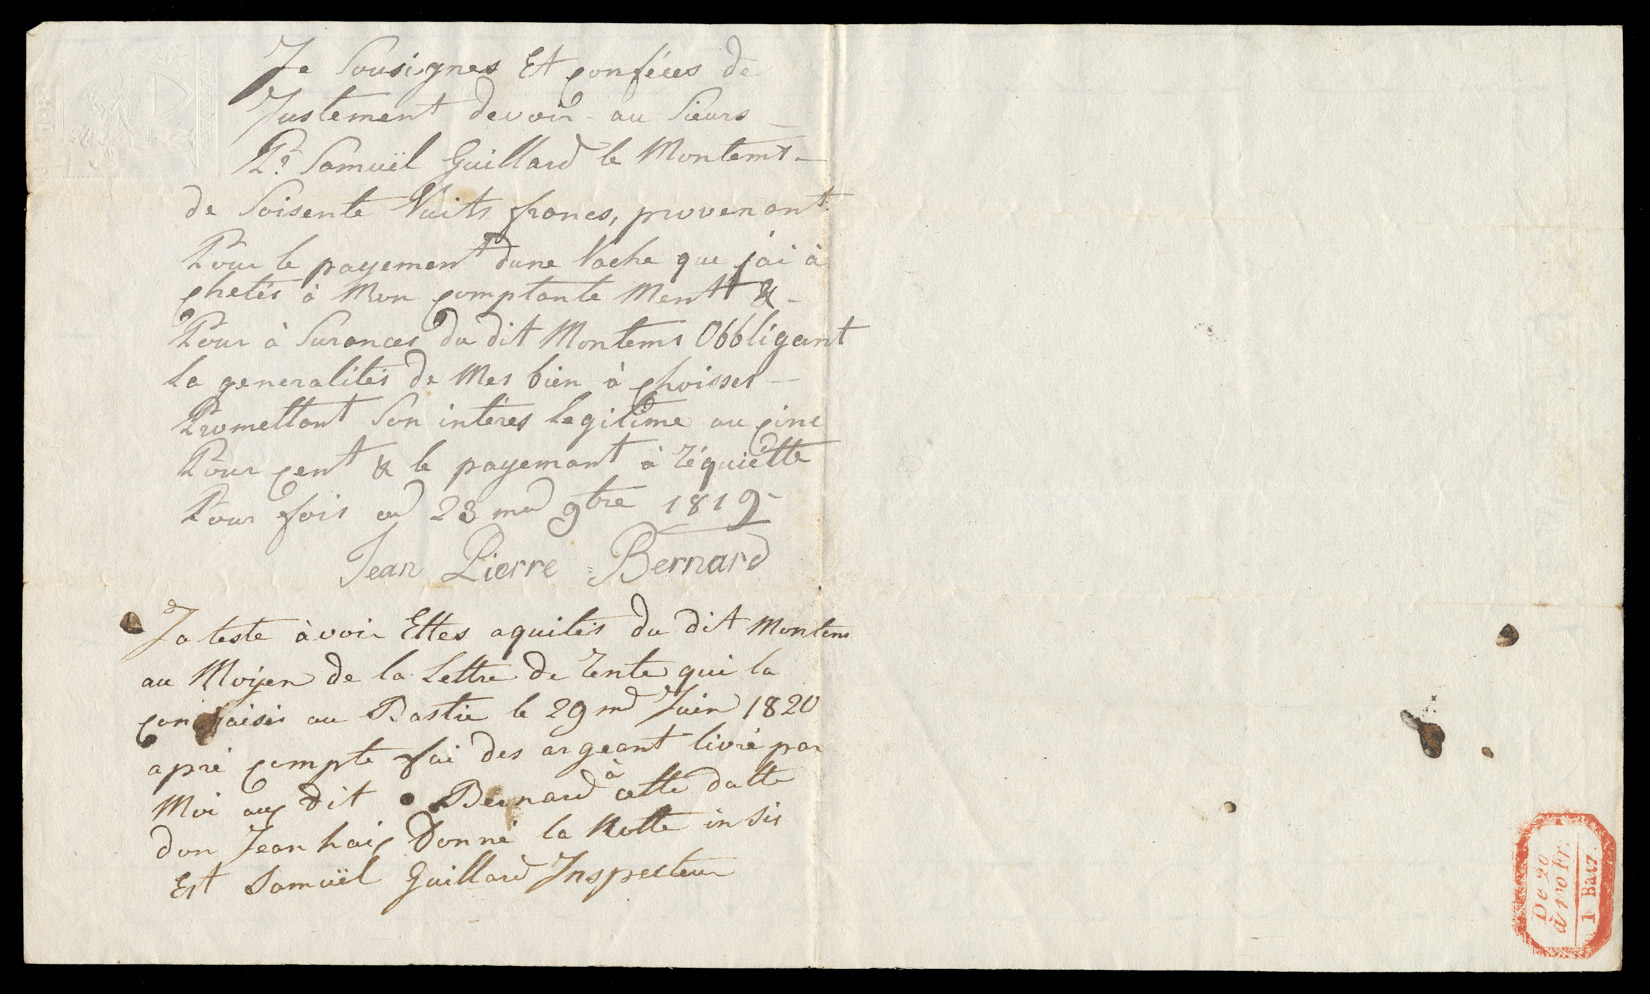 Je Sousignes Et confées de
Justement devoir au Sieurs
Pr. Samuël Guillard le Montems
de Soisente Vuits francs, provenant
Pour le payement dune Vache que jai à
chetés à Mon comptante Mentt &
Pour à Surances du dit Montems Obbligent
La generalités de Mes bien à choisser
Promettant Son intères Legitime au cinc
Pour cent & le payemant à réquiette
Pour fois ce 23 md 9bre 1819
Jean Pierre Bernard
Ja teste àvoir Ettes aquités du dit Montems
au Moÿen de la Lettre de rente qui la
au Bastie le 29 md Juin 1820
aprè compte fai des argeant livré par
Moi au dit Bernard à cette datte
don Jean hai Donné la Notte insis
Est Samuël Guillard Inspecteur
De 20
à 100 Fr.
1 Batz